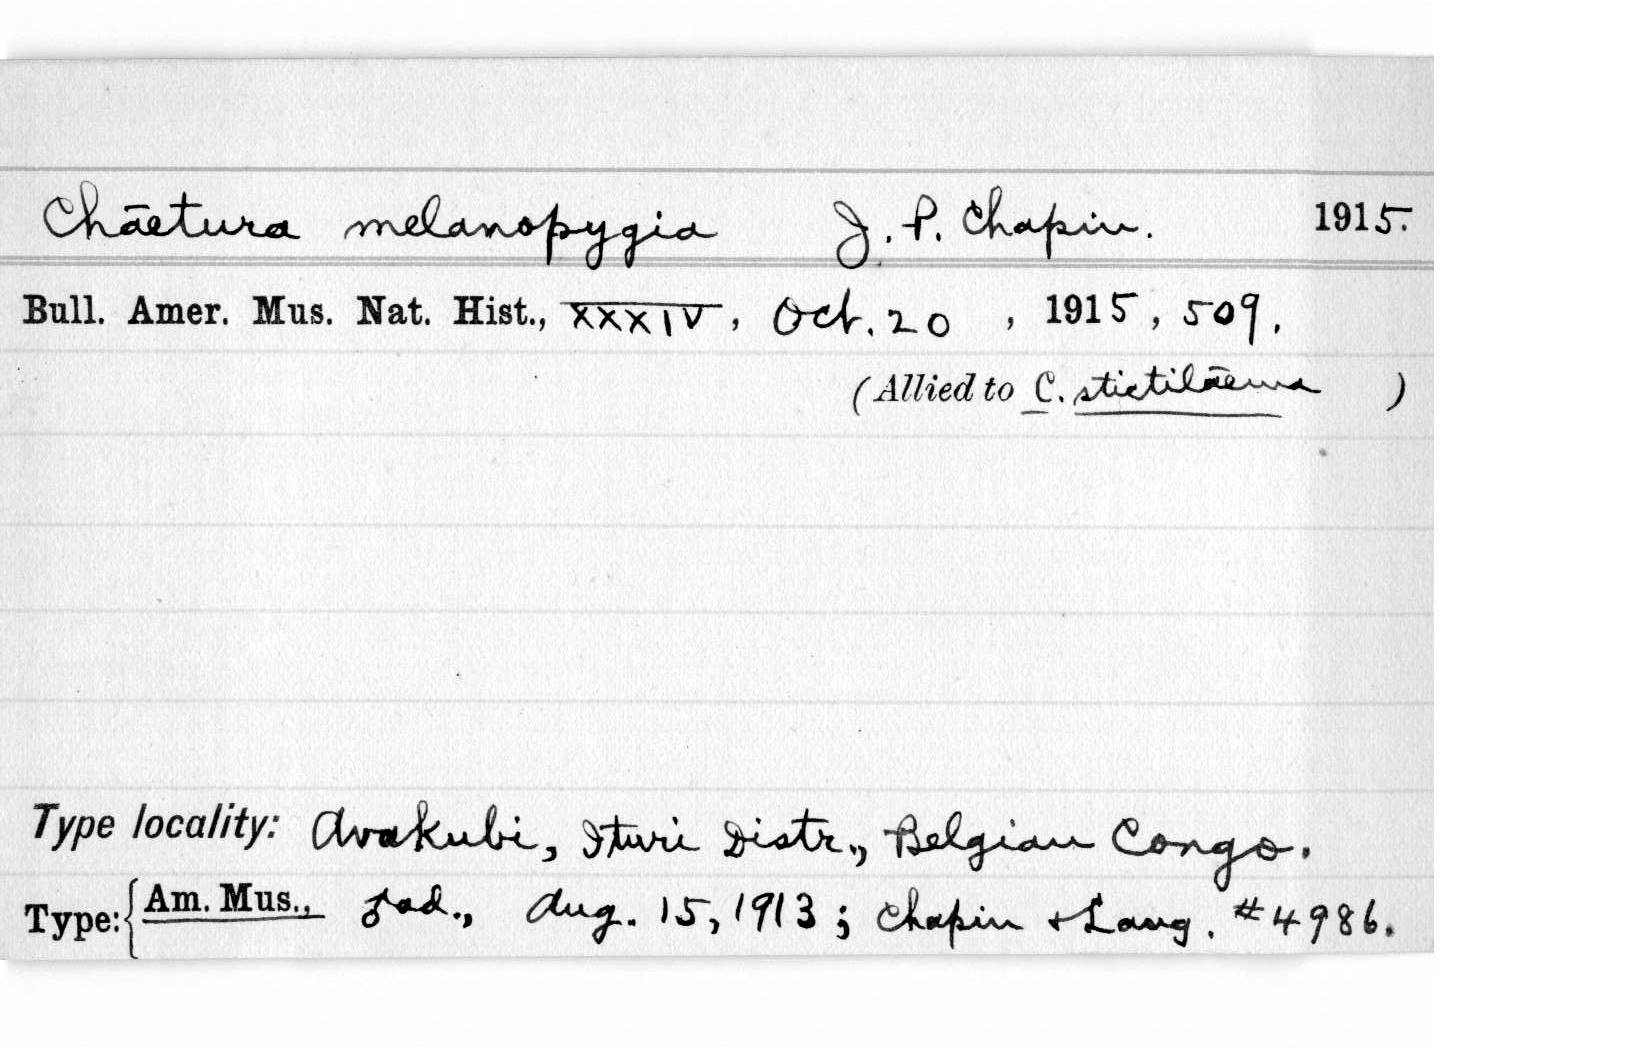 Chāetura melanopygia J. P. Chapin. 1915.
Bull. Amer. Mus. Nat. Hist., XXXIV, Oct. 20, 1915, 509.
(Allied to C. stictilāema)
Type locality: Avakubi, Ituri Distr., Belgian Congo.
Type: { Am. Mus., ♂ad., Aug. 15, 1913; Chapin & Lang. #4986.